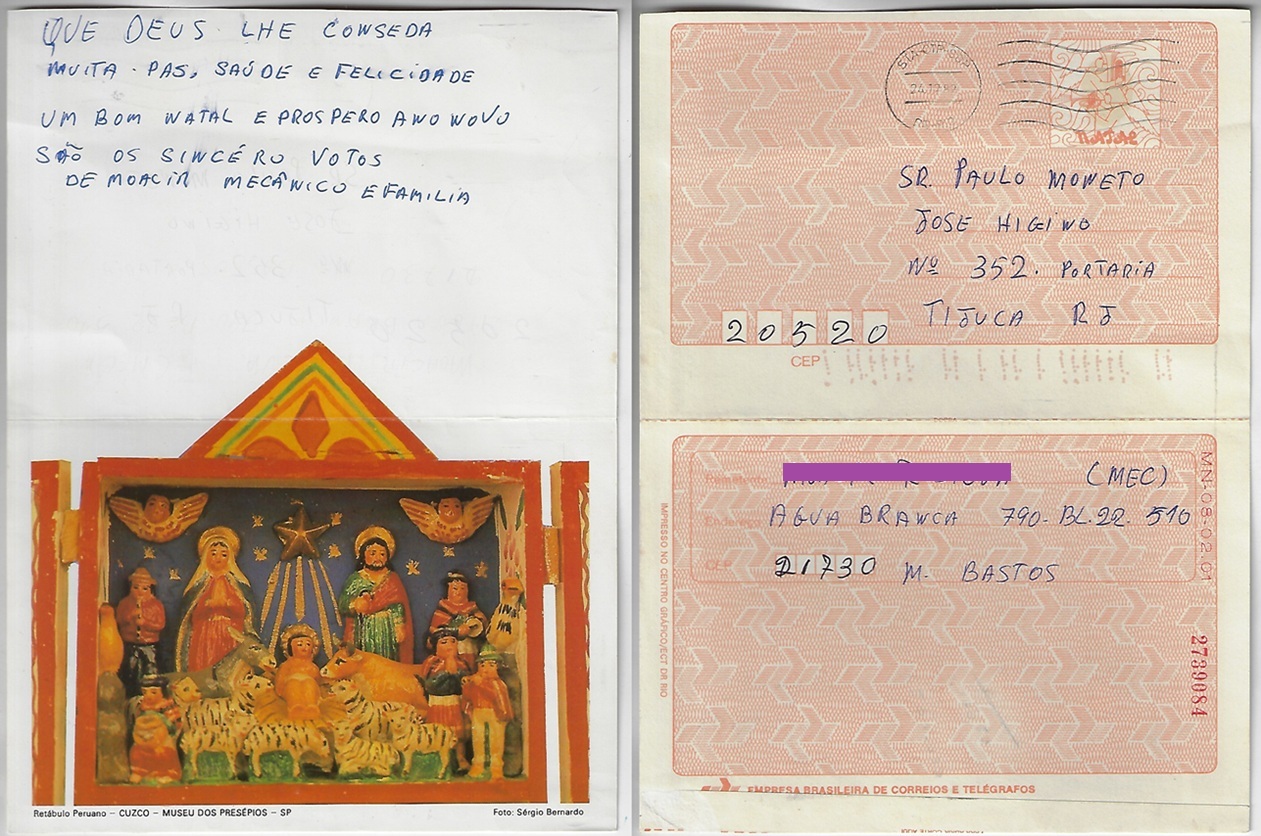 QUE DEUS LHE CONSEDA
MUITA PAS, SAÚDE E FELICIDADE
UM BOM NATAL E PROSPERO ANO NOVO
SÃO OS SINCÉRO VOTOS
DE MOACIR MECÂNICO E FAMILIA
Retábulo Peruano – CUZCO – MUSEU DOS PRESÉPIOS – SP
Foto: Sérgio Bernardo
NATAL
SR. PAULO MONETO
JOSE HIGINO
Nº 352. PORTARIA
TIJUCA RJ
20520
CEP
Remetente
(MEC)
Endereço
AGUA BRANCA 790-BL.22. 510
CEP
21730 M. BASTOS
MN-08-02.01
IMPRESSO NO CENTRO GRÁFICO/ECT DR RIO
2739084
EMPRESA BRASILEIRA DE CORREIOS E TELÉGRAFOS